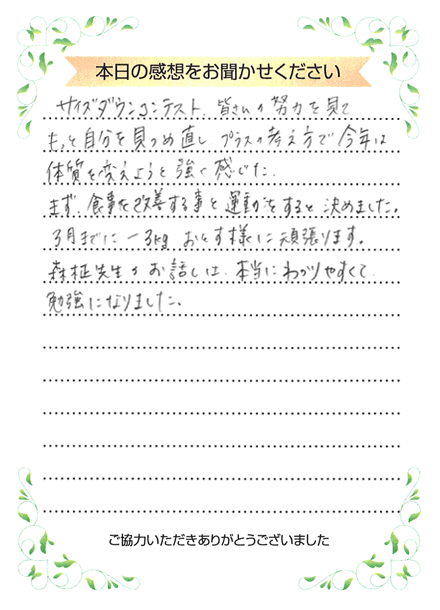 本日の感想をお聞かせください
サイズダウンコンテスト、皆さんの努力を見て
もっと自分を見つめ直し プラスの考え方で今年は
体質を変えようと強く感じた。
まず、食事を改善する事と運動をすると決めました。
3月までに −3kg おとす様に頑張ります。
先生のお話しは、本当にわかりやすくて
勉強になりました。
ご協力いただきありがとうございました